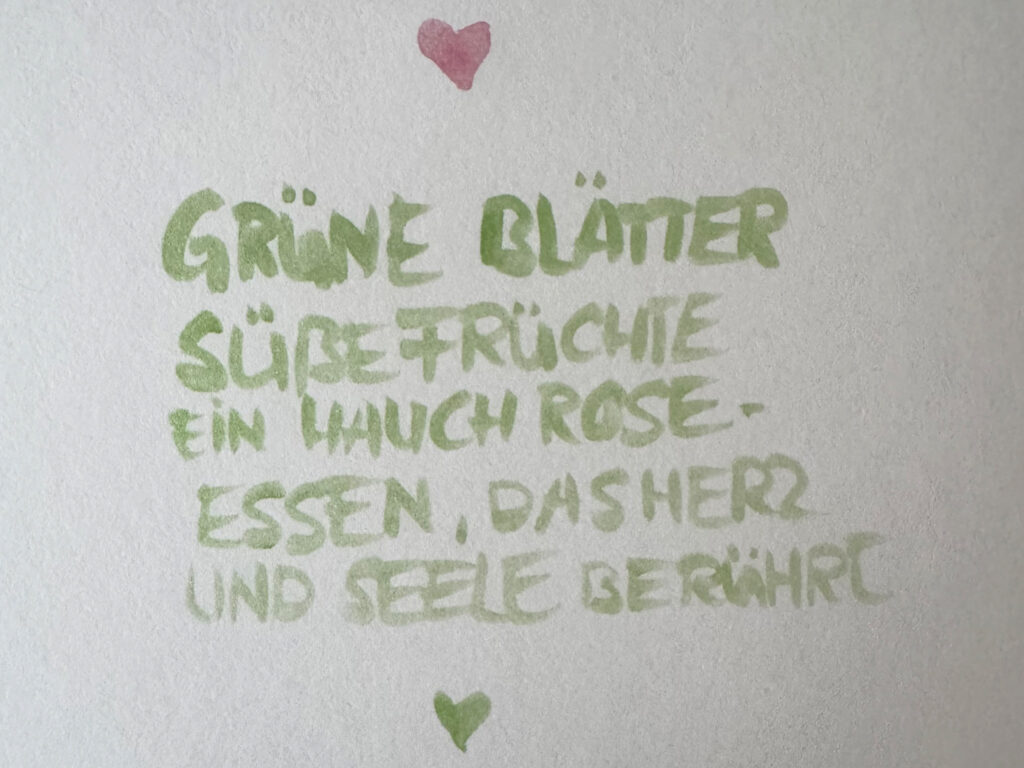 GRÜNE BLÄTTER
SÜßE FRÜCHTE
EIN HAUCH ROSE -
ESSEN, DAS HERZ
UND SEELE BERÜHRT